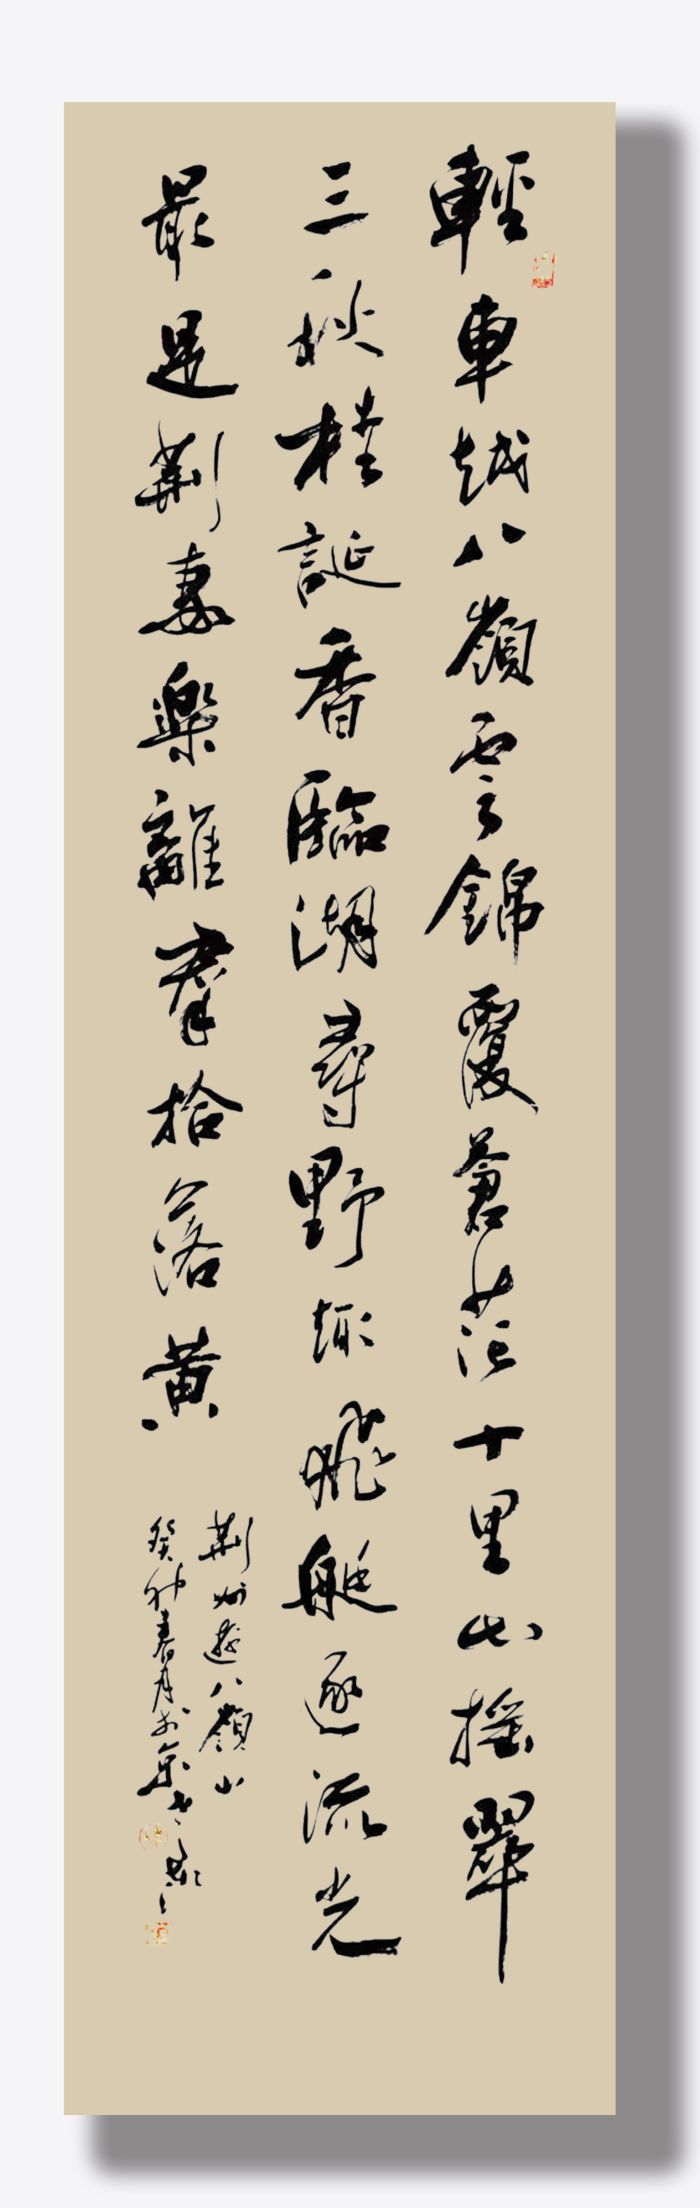 輕車越八嶺雲錦覆蒼茫十里山搖翠
三秋桂誕香臨湖尋野趣飛艇逐流光
最是荊妻樂離羣拾落黃
荊州遊八嶺山
癸卯春月於京